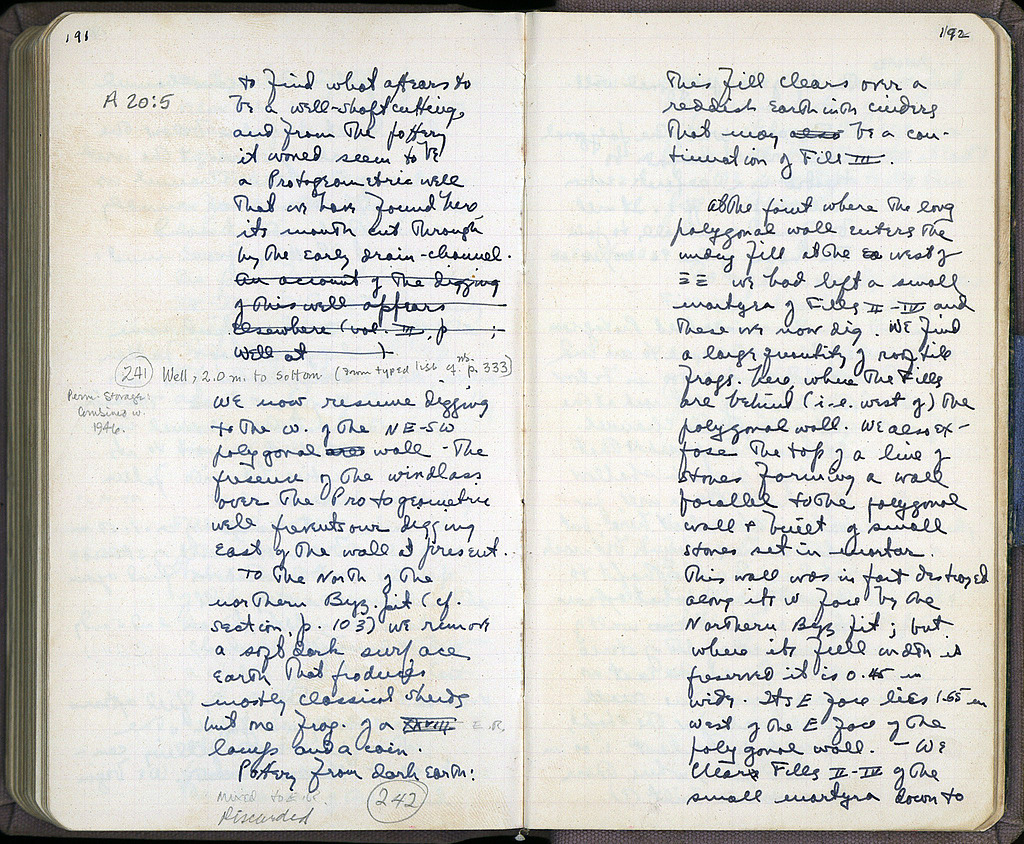 191
A 20:5
to find what appears to
be a well-shaft cutting,
and from the pottery
it would seem to be
a Protogeometric well
that we have found here
its mouth cut through
by the early drain-channel.
An account of the digging
of this well appears
elsewhere (vol. III, p ;
well at )
241 Well, 2.0 m. to bottom (From typed list cf. nb. p. 333)
Perm. Storage:
Combined w.
1946.
We now resume digging
to the W. of the NE-SW
polygonal wall - The
presence of the windlass
over the Protogeometric
well prevents our digging
east of the wall at present.
To the North of the
northern Byz. pit (cf.
section, p. 103) we remove
a soft dark surface
earth that produces
mostly classical sherds
but one frag. of a XXVIII E.R.
lamp and a coin.
Pottery from dark earth:
mixed to E.R.
Discarded
242
192
This fill clears over a
reddish earth with cinders
that may also be a con-
tinuation of Fill III.
At the point where the long
polygonal wall enters the
undug fill at the Ea west of
ΞΞ we had left a small
martyra of Fills II-IV and
these we now dig. We find
a large quantity of rooftile
frags. here where the Fills
are behind (i.e. west of) the
polygonal wall. We also ex-
pose the top of a line of
stones forming a wall
parallel to the polygonal
wall & built of small
stones set in mortar.
This wall was in part destroyed
along its W face by the
Northern Byz pit; but
where its full width is
preserved it is 0.45 m
wide. Its E face lies 1.55 m
west of the E face of the
polygonal wall. - We
clear Fills II-IV of the
small martyra down to